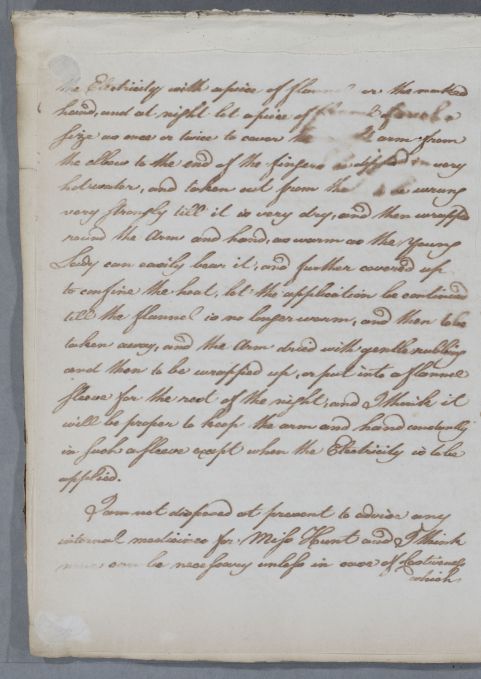 the Electricity with a piece of flannel or the naked
hand, and at night let a piece of of such a
size as once or twice to cover the arm from
the elbow to the end of the fingers be dipped in very
hot water, and taken out from the be wrung
very strongly till it is very dry, and then wrapped
round the Arm and hand, as warm as the Young
Lady can easily bear it, and further covered up
to confine the heat, let the application be continued
till the flannel is no longer warm, and then to be
taken away, and the Arm dried with gentle rubbing
and then to be wrapped up, or put into a flannel
sleeve for the rest of the night, and I think it
will be proper to keep the arm and hand constantly
in such a sleeve except when the Electricity is to be
applied.
I am not disposed at present to advise any
internal medicines for Miss Hunt and I think
none can be necessary unless in case of Costiveness
which